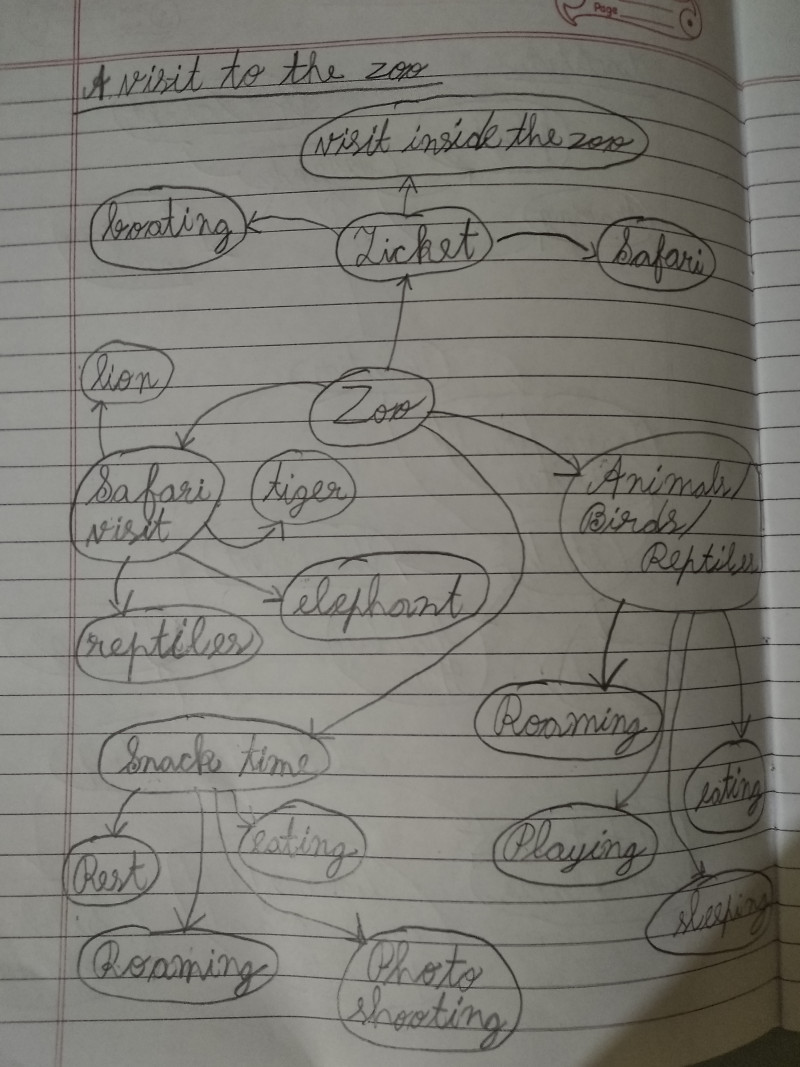 Page
A visit to the zoo
visit inside the zoo
boating
Ticket
Safari
lion
Zoo
Safari
visit
tiger
Animals/
Birds/
Reptiles
elephant
reptiles
Roaming
Snack time
eating
eating
Playing
Rest
sleeping
Roaming
Photo
shooting